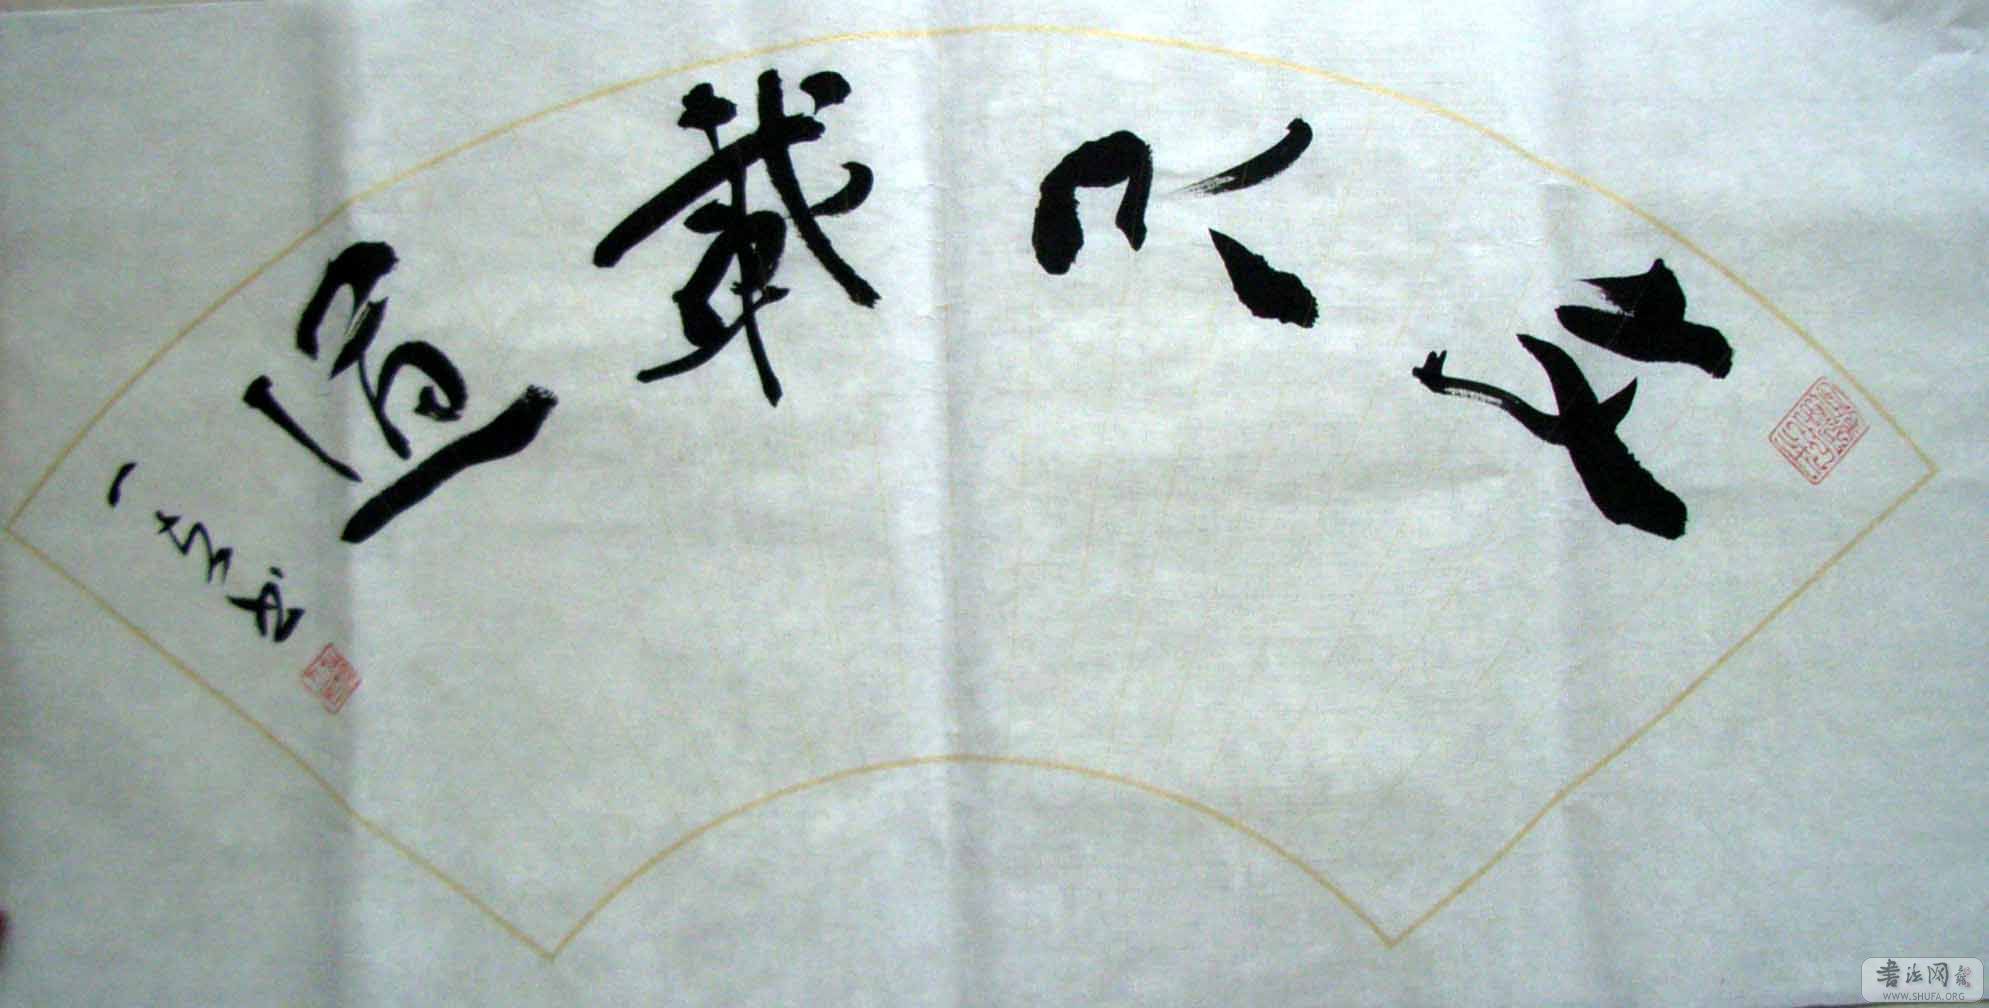 文以載道
一
书法网
WWW.SHUFA.ORG